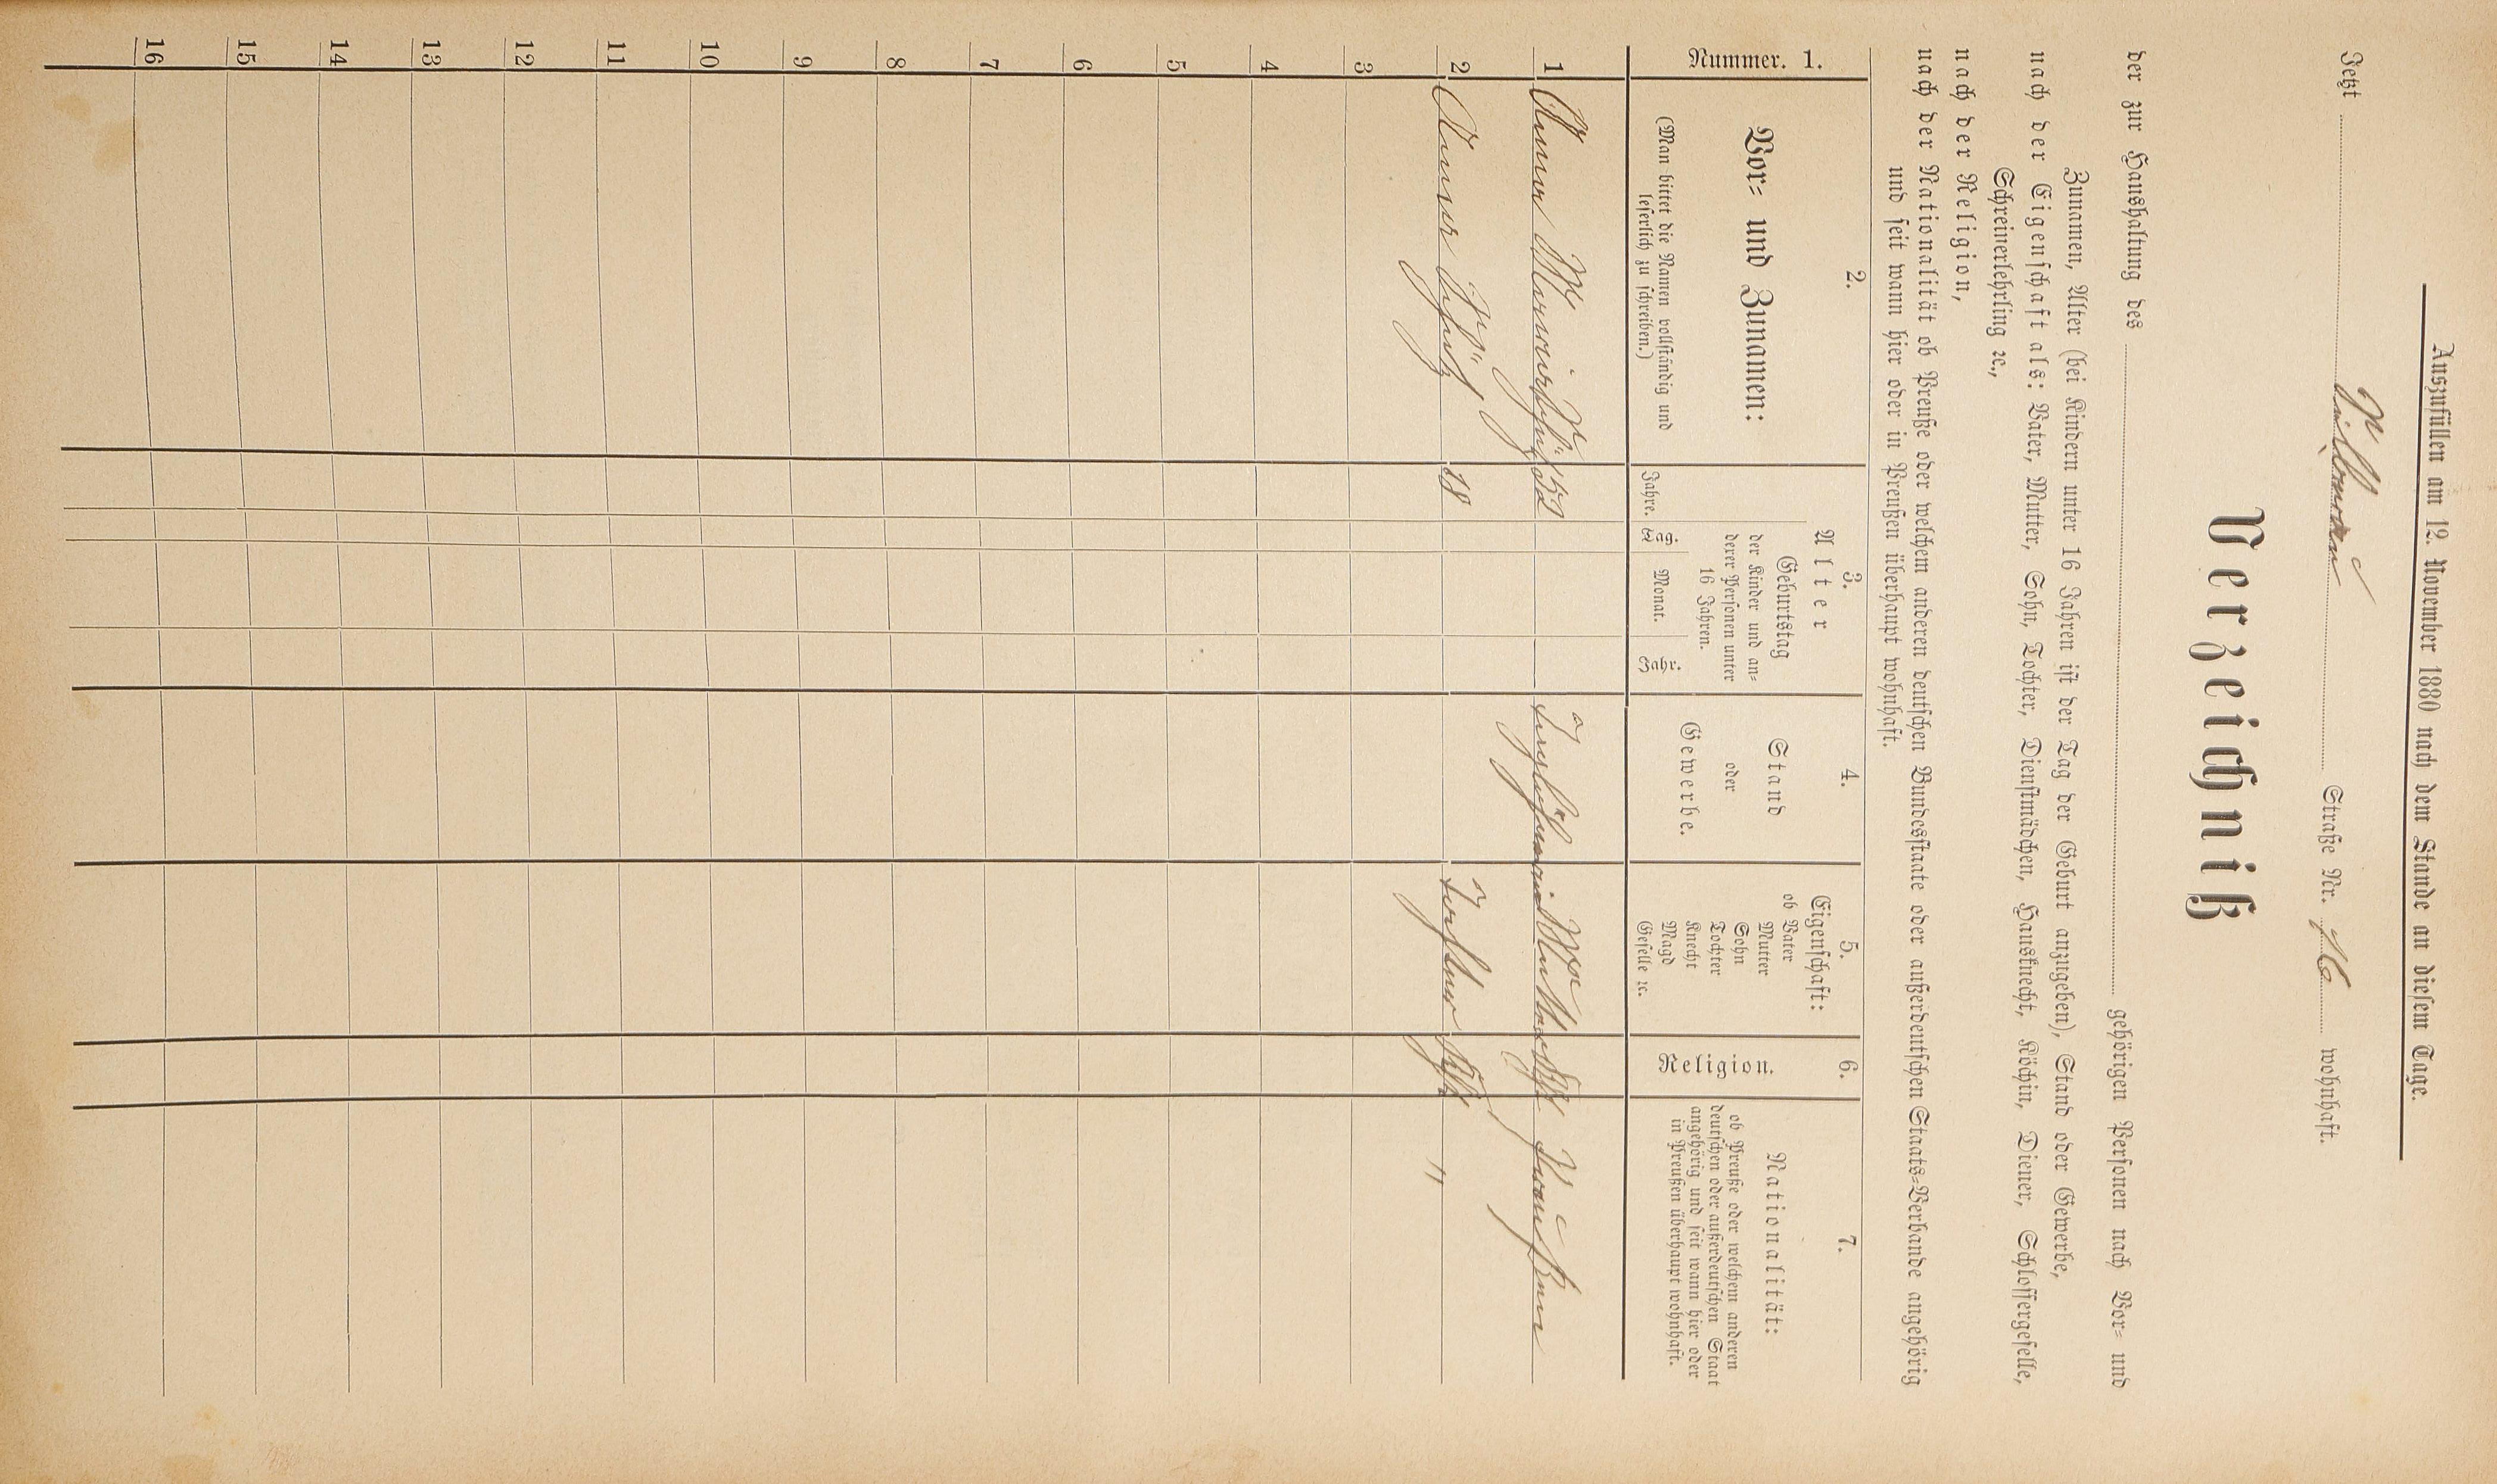 Auszufüllen am 12. November 1880 nach dem Stande an diesem Tage.
Jetzt Straße Nr. 16 wohnhaft.
Verzeichniß
der zur Haushaltung des gehörigen Personen nach Vor= und
Zunamen, Alter (bei Kindern unter 16 Jahren ist der Tag der Geburt anzugeben), Stand oder Gewerbe,
nach der Eigenschaft als: Vater, Mutter, Sohn, Tochter, Dienstmädchen, Hausknecht, Köchin, Diener, Schlossergeselle,
Schreinerlehrling ꝛc.,
nach der Religion,
nach der Nationalität ob Preuße oder welchem anderen deutschen Bundesstaate oder außerdeutschen Staats=Verbande angehörig
und seit wann hier oder in Preußen überhaupt wohnhaft.
Nummer. 1.
2.
Vor= und Zunamen:
(Man bittet die Namen vollständig und
leserlich zu schreiben.)
3.
Alter
Jahre.
Geburtstag
der Kinder und an=
derer Personen unter
16 Jahren.
Tag.
Monat.
Jahr.
4.
Stand
oder
Gewerbe.
5.
Eigenschaft:
ob Vater
Mutter
Sohn
Tochter
Knecht
Magd
Geselle ꝛc.
6.
Religion.
7.
Nationalität:
ob Preuße oder welchem anderen
deutschen oder außerdeutschen Staat
angehörig und seit wann hier oder
in Preußen überhaupt wohnhaft.
1 Anna 52 Taglöhnerin Mutter Kath Preußen
2 Anna Schütz 18 Tochter Kath "
3
4
5
6
7
8
9
10
11
12
13
14
15
16